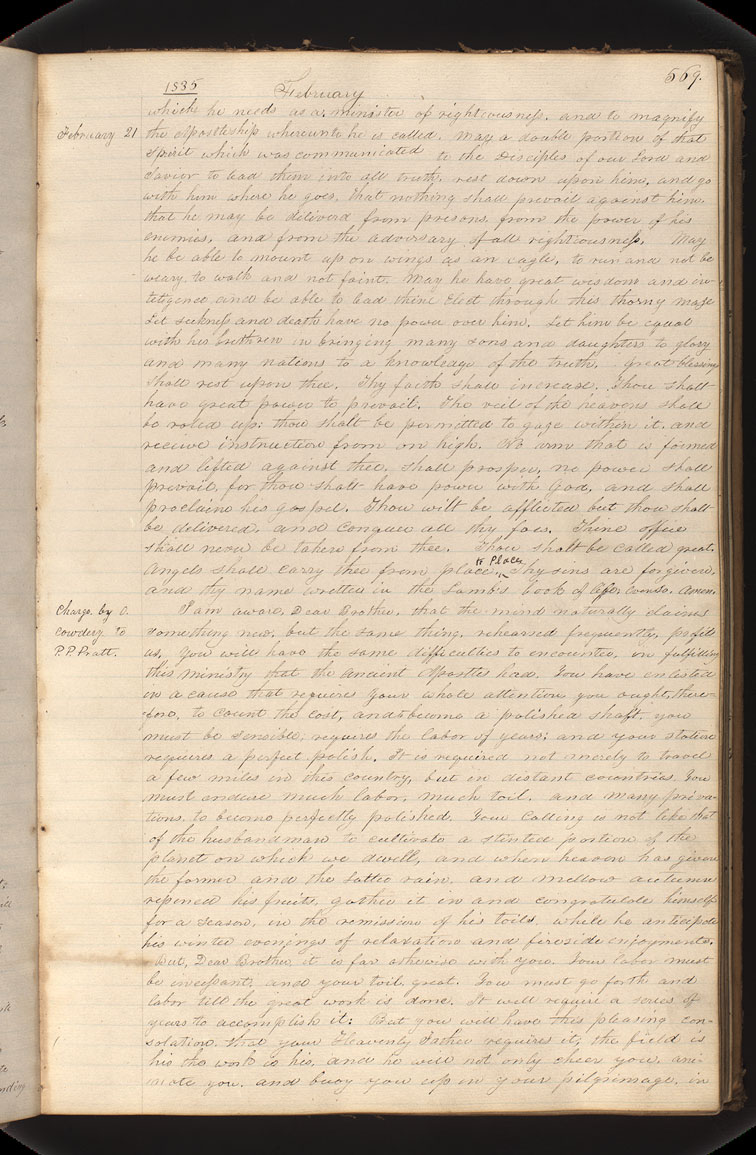 1835 February 569.
which he needs as a minister of righteousness, and to magnify
February 21 the Apostleship whereunto he is called. May a double portion of that
Spirit which was communicated to the Disciples of our Lord and
Savior to lead them into all truth, rest down upon him, and go
with him where he goes, that nothing shall prevail against him,
that he may be delivered from prisons, from the power of his
enemies, and from the adversary of all righteousness. May
he be able to mount up on wings as an eagle, to run and not be
weary, to walk and not faint. May he have great wisdom and in-
teligence, and be able to lead thine Elect through this thorny maze
Let sickness and death have no power over him. Let him be equal
with his brethren in bringing many sons and daughters to glory
and many nations to a knowledge of the truth. Great blessing
shall rest upon thee. Thy faith shall increase. Thou shalt
have great power to prevail. The veil of the heavens shall
be roled up; thou shalt be permitted to gaze within it, and
receive instruction from on high. No arm that is formed
and lifted against thee, shall prosper, no power shall
prevail, for thou shalt have power with God, and shall
proclaim his gospel. Thou wilt be afflicted but thou shalt
be delivered, and conquer all thy foes. Thine office
shall never be taken from thee. Thou shalt be called great.
Angels shall carry thee from place, to Place Thy sins are forgiven,
and thy name written in the Lamb's book of life, Amen.
Charge. by O. I am aware, Dear Brother, that the mind naturally claims
Cowdery to something new, but the same thing, rehearsed frequently, profits
P. P. Pratt. us, You will have the same difficulties to encounter, in fulfilling
this ministry that the ancient Apostles had. You have enlisted
in a cause that requires your whole attention you ought, there-
fore, to count the cost, and to become a polished shaft, you
must be sensible, requires the labor of years; and your station
requires a perfect polish. It is required not merely to travel
a few miles in this country, but in distant countries. You
must endure much labor, much toil, and many priva-
tions, to become perfectly polished. Your calling is not like that
of the husbandman to cultivate a stinted portion of the
planet on which we dwell, and when heaven has given
the former and the latter rain, and mellow autumn
ripened his fruits, gather it in and congratulate himself
for a season, in the remission of his toils, while he anticipates
his winter evenings of relaxation and fireside enjoyments.
But, Dear Brother it is far otherwise with you. Your labor must
be incessant, and your toil great. You must go forth and
labor till the great work is done. It will require a series of
years to accomplish it: But you will have this pleasing con-
solation, that your Heavenly Father requires it; the field is
his the work is his, and he will not only cheer you, ani-
mate you, and buoy you up in your pilgrimage, in